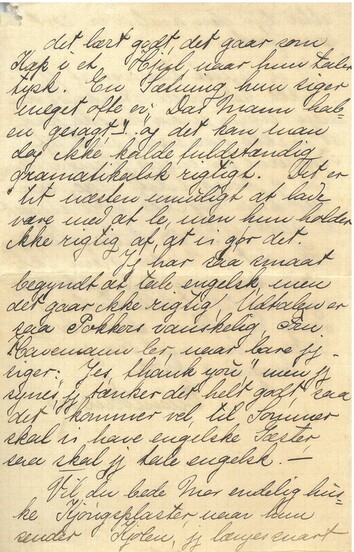 det lært godt, det gaar som
Kap i et Hjul naar hun taler
tysk. En Sætning, hun siger
meget ofte er; "Das Mann hab-
en gesagt", og det kan man
dog ikke kalde fuldstændig
dramatikalsk rigtigt. Tit er
tit næsten umuligt at lade
være med at le, men hun holder
ikke rigtig af, at vi gør det.
Jj har saa smaat
begyndt at tale engelsk, men
det gaar ikke rigtig, Udtalen er
saa Pokkers vanskelig, Frn
Havemann ler, naar bare jj
siger: "Yes, thank you", men jj
synes, jj tænker det helt godt, saa
det kommer vel, til Sommer
skal vi have engelske Gæster,
saa skal jj tale engelsk. —
Vil du bede Mor endelig hus-
ke Kjongsplaster, naar hun
sender Kjolen, jj længes snart